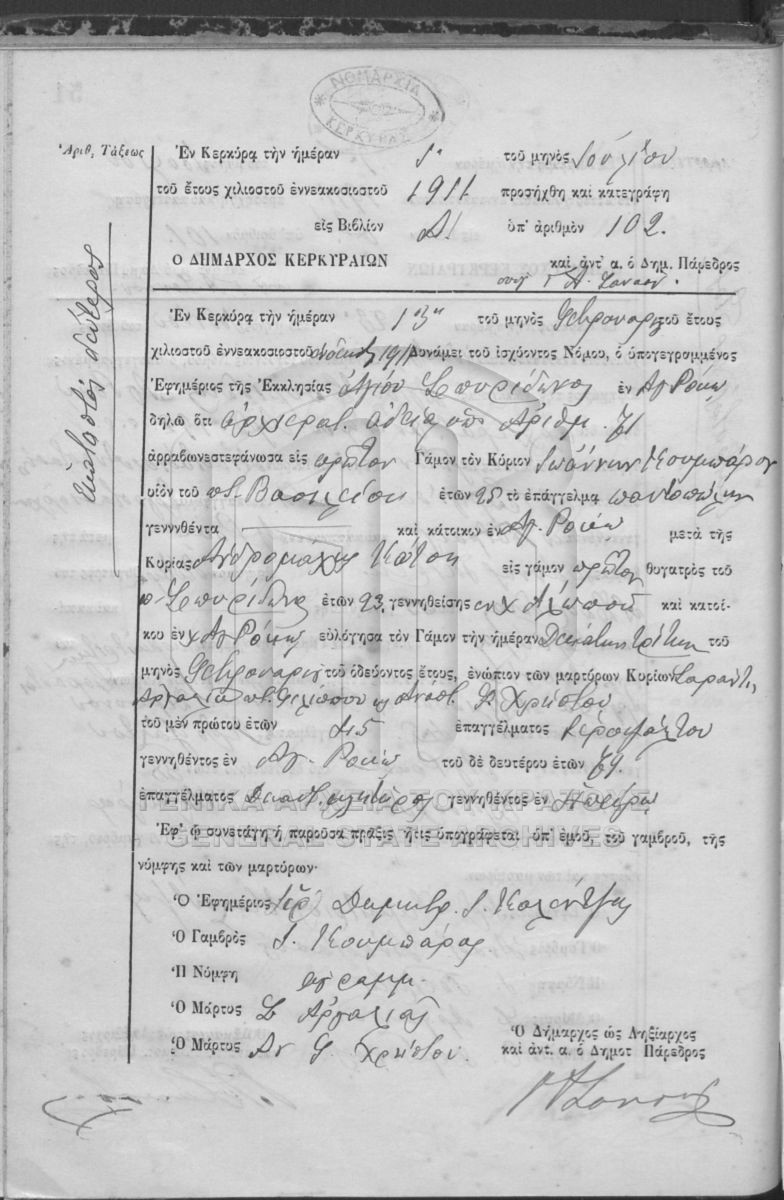 ΝΟΜΑΡΧΙΑ
ΚΕΡΚΥΡΑΣ
Ἀριθ. Τάξεως
Ἐν Κερκύρᾳ τὴν ἡμέραν 1η τοῦ μηνὸς Ἰουλίου
τοῦ ἔτους χιλιοστοῦ ἐννεακοσιοστοῦ 1911 προσήχθη καὶ κατεγράφη
εἰς Βιβλίον ὑπ' ἀριθμὸν 102.
Ο ΔΗΜΑΡΧΟΣ ΚΕΡΚΥΡΑΙΩΝ καὶ ἀντ' α. ὁ Δημ. Πάρεδρος
ἑκατοστὸς δεύτερος
Ἐν Κερκύρᾳ τὴν ἡμέραν 13ην τοῦ μηνὸς Φεβρουαρίου τοῦ ἔτους
χιλιοστοῦ ἐννεακοσιοστοῦ ἑνδεκάτου 1911 Δυνάμει τοῦ ἰσχύοντος Νόμου, ὁ ὑπογεγραμμένος
Ἐφημέριος τῆς Ἐκκλησίας Ἁγίου Σπυρίδωνος ἐν Ἁγ Ρόκῳ
δηλῶ ὅτι ἀρχιερατ. ἀδείᾳ ὑπ' Ἀριθμ. 71
ἀρραβωνεστεφάνωσα εἰς πρῶτον Γάμον τὸν Κύριον Ἰωάννην Κουμπάρον
υἱὸν τοῦ π. Βασιλείου ἐτῶν 25 τὸ ἐπάγγελμα παντοπώλην
γεννηθέντα καὶ κάτοικον ἐν Ἁγ. Ρόκῳ μετὰ τῆς
Κυρίας Ἀνδρομάχης εἰς γάμον πρῶτον θυγατρὸς τοῦ
π. Σπυρίδωνος ἐτῶν 23, γεννηθείσης ἐν χ Ἀλεποῦ καὶ κατοί-
κου ἐν χ Ἁγ Ρόκῳ εὐλόγησα τὸν Γάμον τὴν ἡμέραν Δεκάτην τρίτην τοῦ
μηνὸς Φεβρουαρίου τοῦ ὁδεύοντος ἔτους, ἐνώπιον τῶν μαρτύρων Κυρίων Σαράντη
Φιλίππου Χρήστου
τοῦ μὲν πρώτου ἐτῶν 45 ἐπαγγέλματος
γεννηθέντος ἐν Ἁγ. Ρόκῳ τοῦ δὲ δευτέρου ἐτῶν 79.
ἐπαγγέλματος Δικαστ. κλητῆρος γεννηθέντος ἐν
ΓΕΝΙΚΑ ΑΡΧΕΙΑ ΤΟΥ ΚΡΑΤΟΥΣ
Ἐφ' ᾧ συνετάγη ἡ παροῦσα πρᾶξις ἥτις ὑπογράφεται ὑπ' ἐμοῦ, τοῦ γαμβροῦ, τῆς
GENERAL STATE ARCHIVES
νύμφης καὶ τῶν μαρτύρων·
Ὁ Ἐφημέριος Ἱερ Δημητρ. Ι. Κολέντζας
Ὁ Γαμβρὸς Ι. Κουμπάρος
Ἡ Νύμφη ἀγραμμ.
Ὁ Μάρτυς Σ
Ὁ Μάρτυς Χρήστου.
Ὁ Δήμαρχος ὡς Ληξίαρχος
καὶ ἀντ. α. ὁ Δημοτ Πάρεδρος